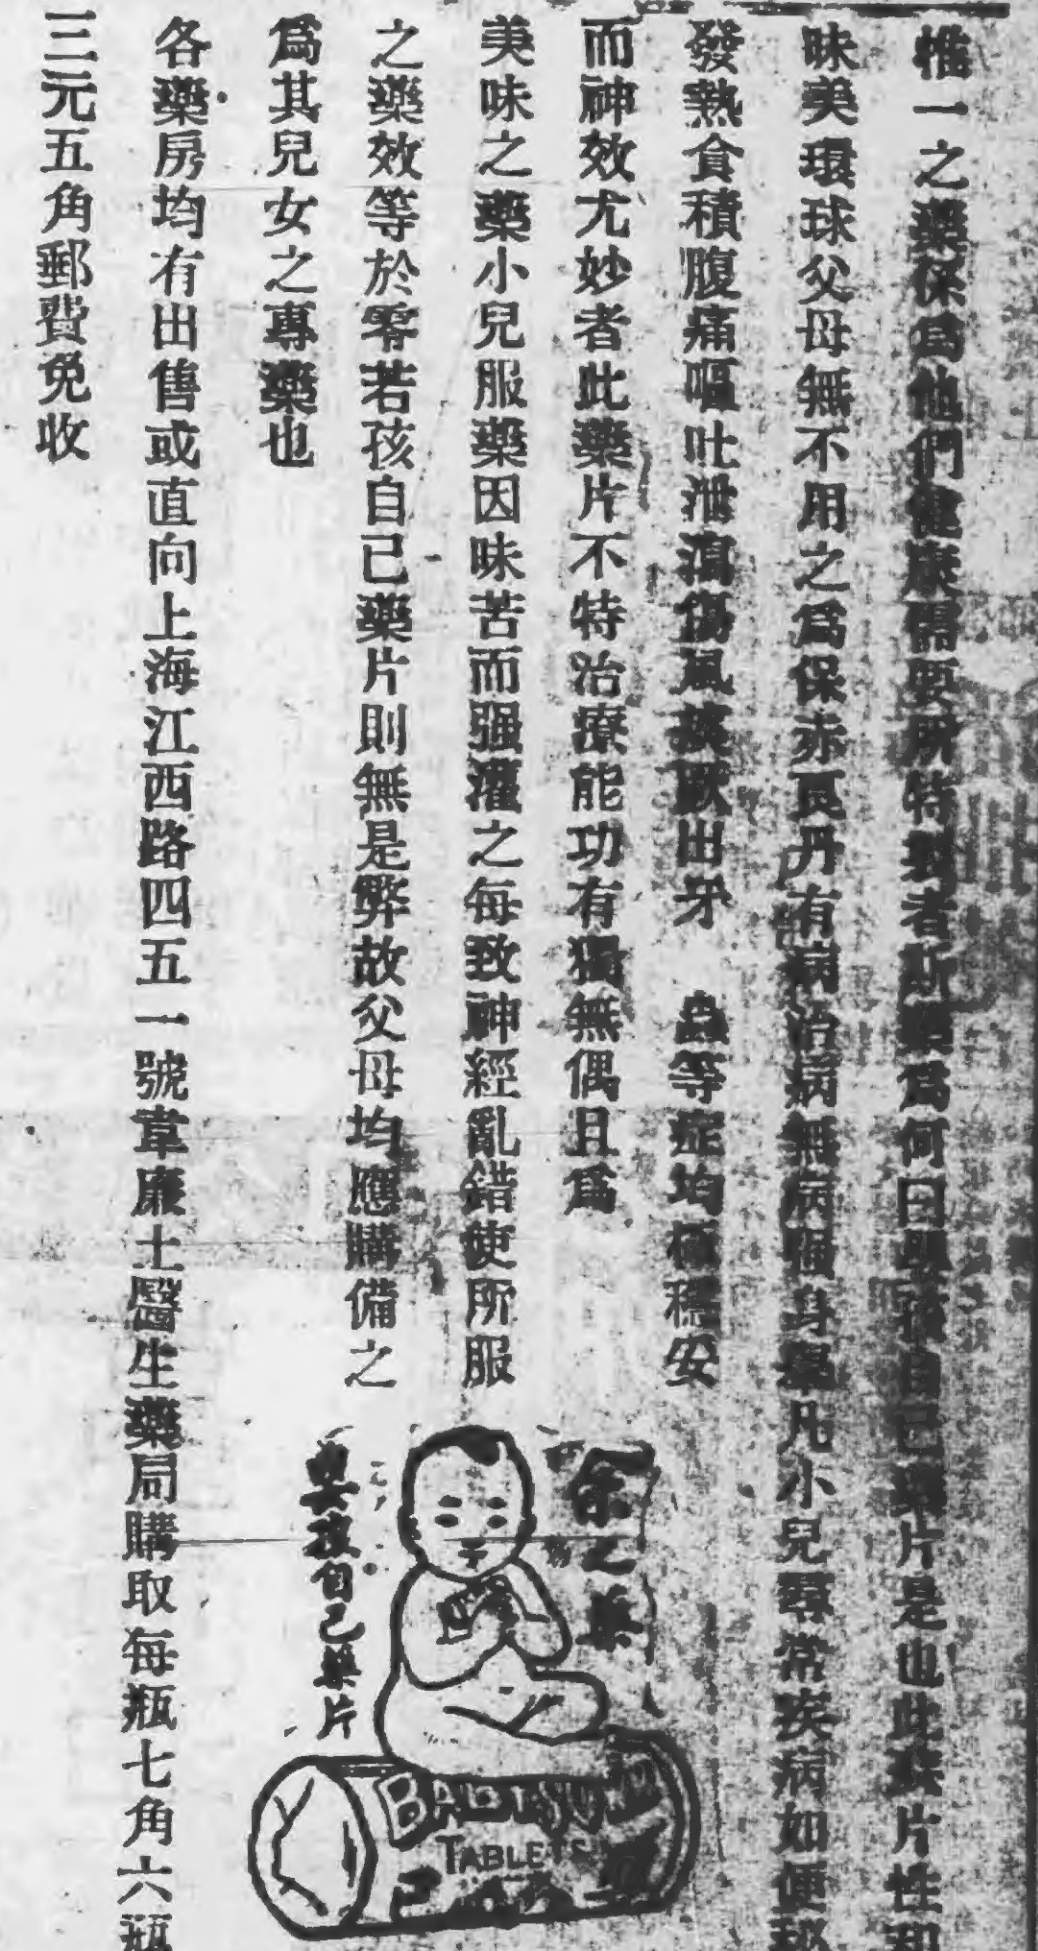 惟一之藥保爲他們健康需要所特製者斯藥爲何曰嬰孩自己藥片是也此藥片性和
味美環球父母無不用之爲保赤良丹有病治病無病強身舉凡小兒尋常疾病如便秘
發熱食積腹痛嘔吐泄瀉傷風痰厥出牙 蟲等症均極穩妥
而神效尤妙者此藥片不特治療能功有獨無偶且爲
美味之藥小兒服藥因味苦而强灌之每致神經亂錯使所服
之藥效等於零若孩自己藥片則無是弊故父母均應購備之
爲其兒女之專藥也
各藥房均有出售或直向上海江西路四五一號韋廉士醫生藥局購取每瓶七角六瓶
三元五角郵費免收
余之藥
嬰孩自己藥片
TABLETS